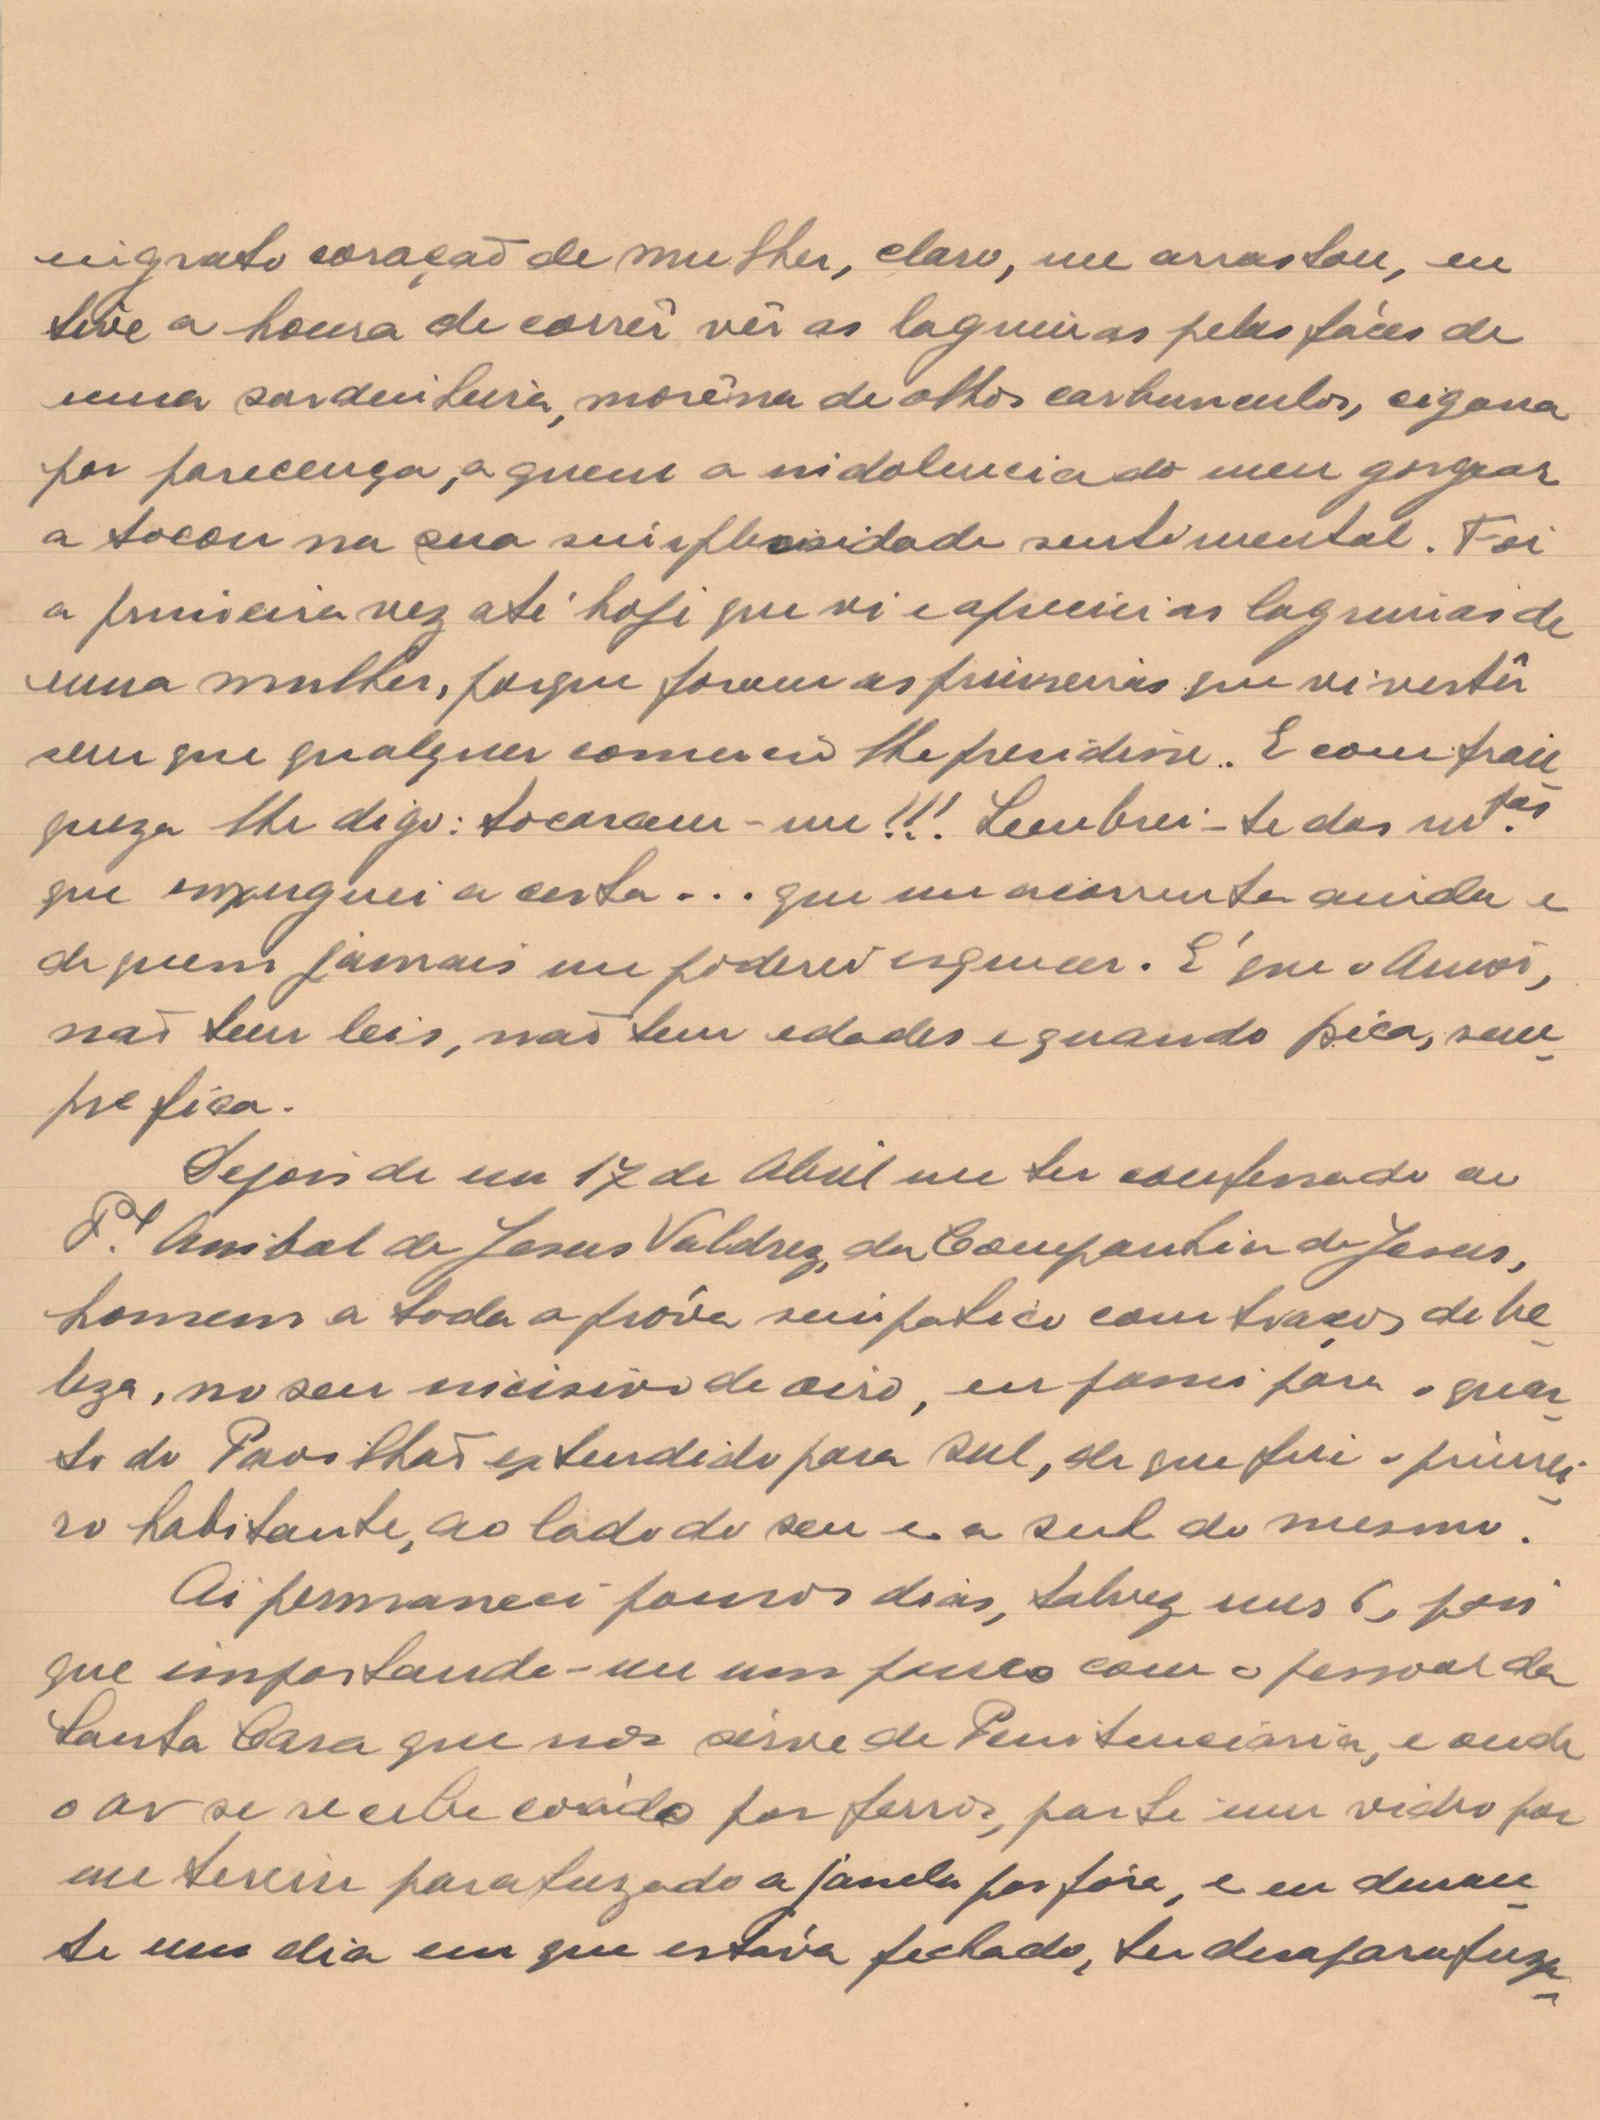 ingrato coração de mulher, claro, me arrastou, eu
tive a honra de corrêr vêr as lagrimas pelas fáces de
uma sardinheira, morêna de olhos carbunculos, cigana
por parecença, a quem a indolencia do meu gorgear
a tocou na sua simplicidade sentimental. Foi
a primeira vez até hoje que vi e apreciei as lagrimas de
uma mulher, porque foram as primeiras que vi vertêr
sem que qualquer comercio lhe presidisse. E com fran-
queza lhe digo: tocaram-me!!! Lembrei-te das m.tas
que enxuguei a certa... que me acorrenta a vida e
de quem jamais me poderei esquecer. E' que o Amôr,
não tem leis, não tem edades e quando pica, sem-
pre fica.
Depois de em 17 de Abril me ter confessado ao
P.e Anibal de Jesus Valdrez, da Companhia de Jesus,
homem a toda a próva simpatico com traços de be-
leza, no seu incisivo de oiro, eu passei para o quar-
to do Pavilhão extendido para sul, de que fui o primei-
ro habitante, ao lado do seu e a sul do mesmo.
Ai permaneci poucos dias, talvez uns 6, pois
que importando-me um pouco com o pessoal da
Santa Casa que nos sérve de Penitenciaria, e onde
o ar se recebe coádo por ferros, parti um vidro por
me terem parafuzado a janela por fóra, e eu duran-
te um dia em que estáva fechado, ter desaparafuza-